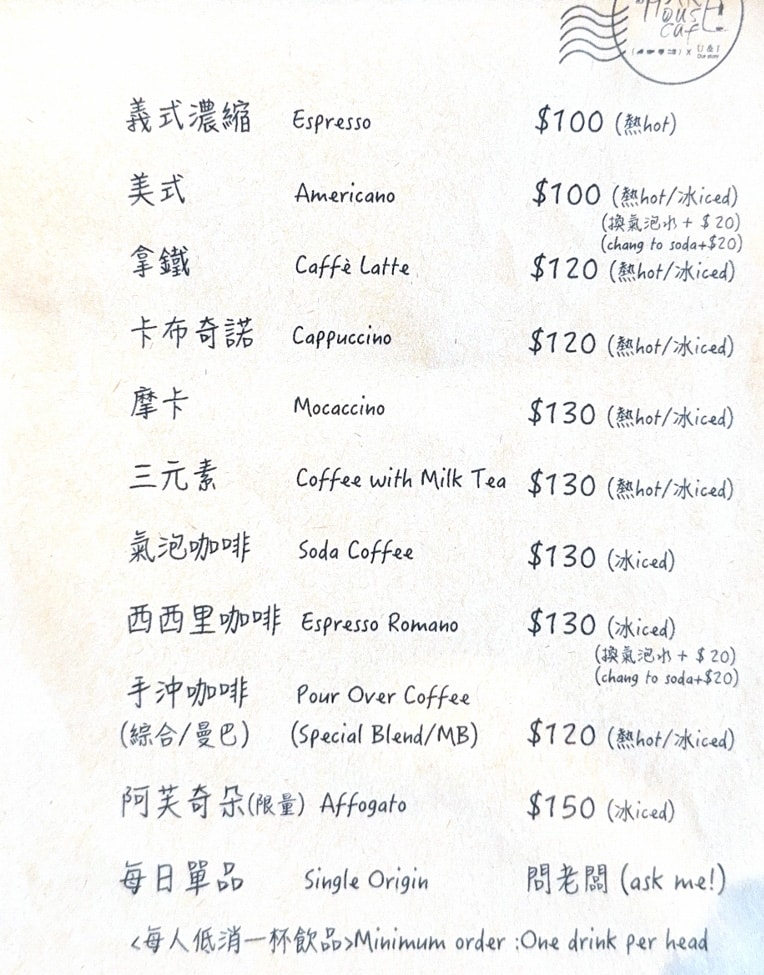 House
Caf
x U & I
Our story
義式濃縮 Espresso $100 (熱hot)
美式 Americano $100 (熱hot/冰iced)
(換氣泡水 + $20)
(chang to soda+$20)
拿鐵 Caffè Latte $120 (熱hot/冰iced)
卡布奇諾 Cappuccino $120 (熱hot/冰iced)
摩卡 Mocaccino $130 (熱hot/冰iced)
三元素 Coffee with Milk Tea $130 (熱hot/冰iced)
氣泡咖啡 Soda Coffee $130 (冰iced)
西西里咖啡 Espresso Romano $130 (冰iced)
(換氣泡水 + $20)
(chang to soda+$20)
手沖咖啡 Pour Over Coffee
(綜合/曼巴) (Special Blend/MB) $120 (熱hot/冰iced)
阿芙奇朵(限量) Affogato $150 (冰iced)
每日單品 Single Origin 問老闆 (ask me!)
<每人低消一杯飲品>Minimum order :One drink per head